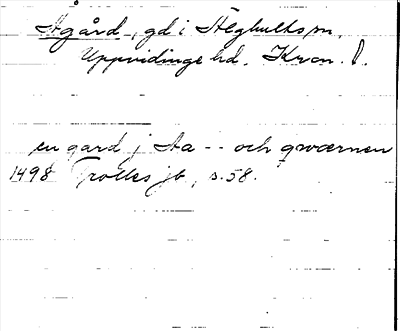 Ågård, gd i Älghults sn,
Uppvidinge hd. Kron. l.
en gard j Aa -- och qwærnen
1498 Trolles jb, s. 58.